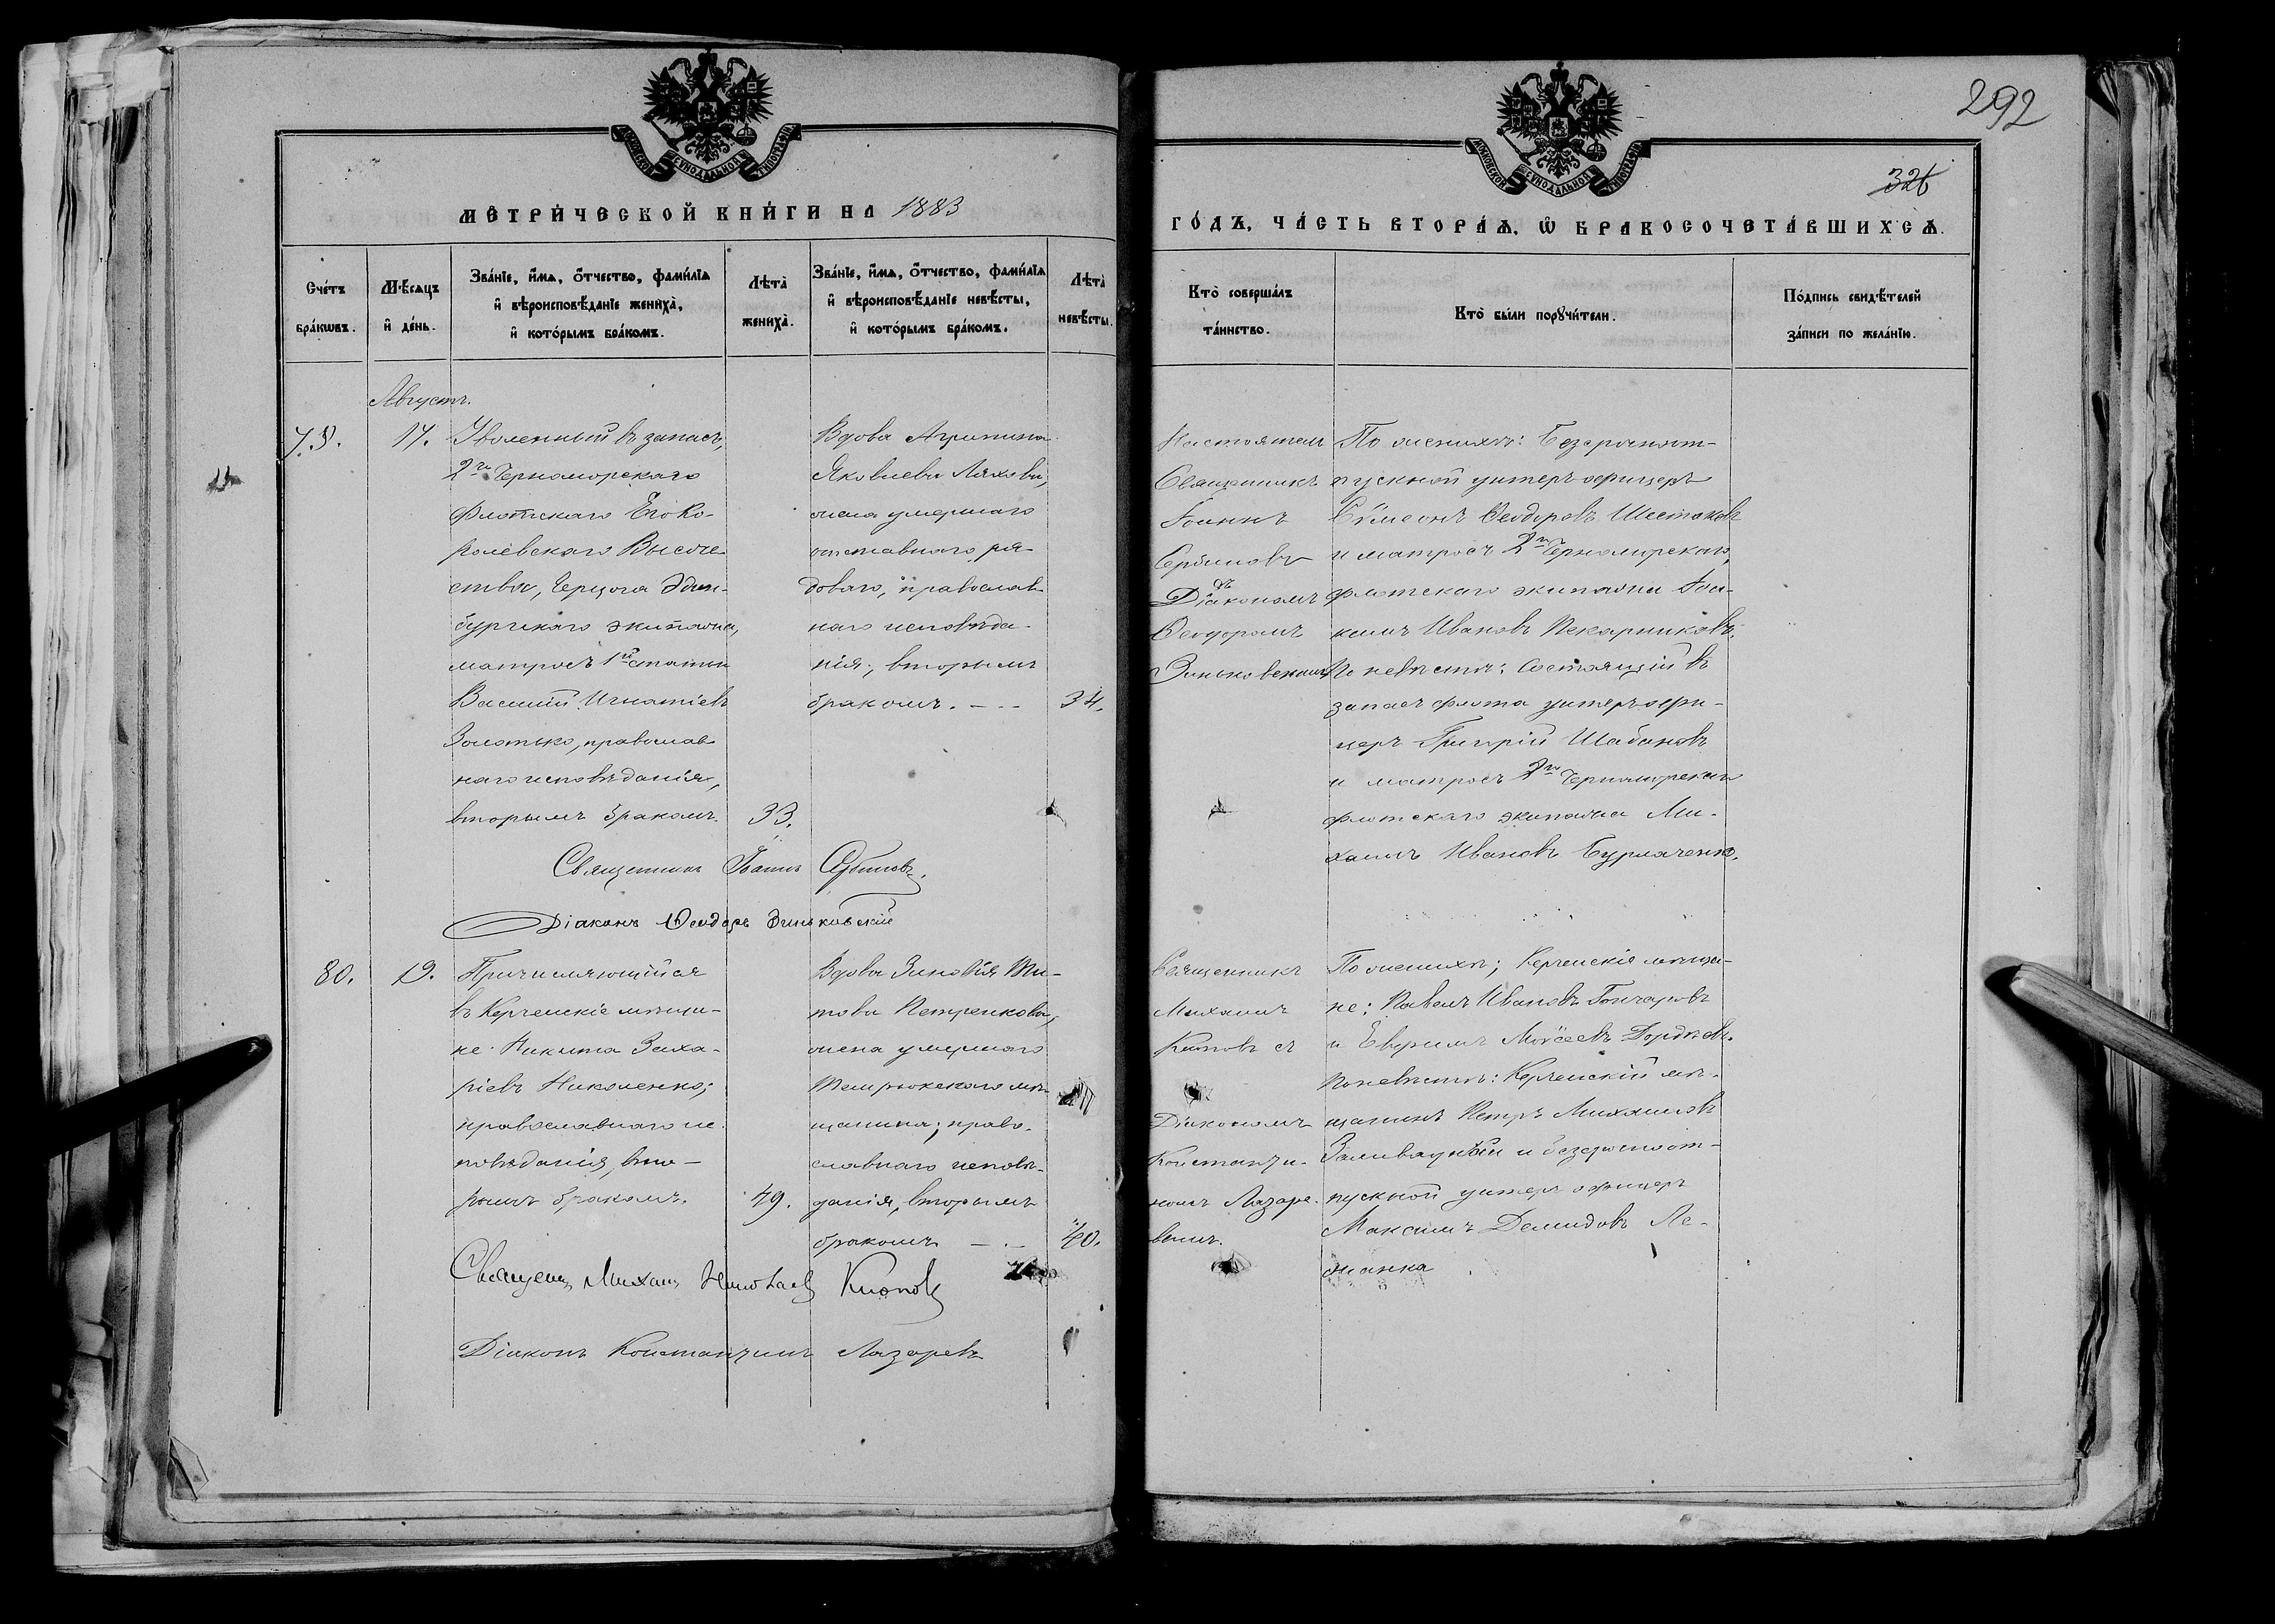 292
МОСКОВСКОЙ СУНОДАЛЬНОЙ ТИПОГРАФІИ
МОСКОВСКОЙ СУНОДАЛЬНОЙ ТИПОГРАФІИ
326
МЕТРИ́ЧЕСКОЙ КНИ́ГИ НА 1883
ГО́ДЪ, ЧА́СТЬ ВТОРА́Я, Ѡ҆ БРАКОСОЧЕТА́ВШИХСѦ.
Сче́тъ бра́кѡвъ.
Мѣ́сѧцъ и҆ де́нь.
Зва́нїе, и҆́мѧ, ѻ҆́тчество, фами́лїѧ
и҆ вѣроисповѣ́данїе жениха̀,
и҆ кото́рымъ бра́комъ.
Лѣта̀ жениха̀.
Зва́нїе, и҆́мѧ, ѻ҆́тчество, фами́лїѧ
и҆ вѣроисповѣ́данїе невѣ́сты,
и҆ кото́рымъ бра́комъ.
Лѣта̀ невѣ́сты.
Кто̀ соверша́лъ та́инство.
Кто̀ бы́ли порꙋчи́тели.
По́дпись свидѣ́телей за́писи по жела́нїю.
Августъ.
17.
Уволенный въ запасъ,
2го Черноморскаго
Флотскаго Его Ко-
ролевскаго Высоче-
ства, Герцога Эдин-
бургскаго экипажа,
матросъ 1й статьи
Василій Игнатіевъ
Золотько, православ-
наго исповѣданія,
вторымъ бракомъ.
33.
Вдова Агрипина
Яковлева Ляхова,
жена умершаго
отставного ря-
доваго, православ-
наго исповѣда-
нія; вторымъ
бракомъ. — —
34.
Настоятель
Священникъ
Іоаннъ
Сербиновъ
съ
Діакономъ
Ѳеодоромъ
Зиньковскимъ
По женихѣ: Безсрочноот-
пускной унтеръ-офицеръ
Сѵмеонъ Ѳеодоровъ Шестаковъ
и матросъ 2го Черноморскаго
флотскаго экипажа Іоа-
кимъ Ивановъ Пекарниковъ.
По невѣстѣ: Состоящій въ
запасѣ флота унтеръ-офи-
церъ Григорій Шабановъ
и матросъ 2го Черноморскаго
флотскаго экипажа Ми-
хаилъ Ивановъ Бурляченко.
Священникъ Іоаннъ Сербиновъ.
Діаконъ Ѳеодоръ Зиньковскій
80.
19.
Причисляющійся
въ Керченскіе мѣща-
не Никита Заха-
ріевъ Николенко;
православнаго ис-
повѣданія, вто-
рымъ бракомъ.
49.
Вдова Зиновія Ти-
това Петренкова,
жена умершаго
Темрюкскаго мѣ-
щанина; право-
славнаго исповѣ-
данія, вторымъ
бракомъ — —
40.
Священникъ
Михаилъ
Кіоповъ съ
Діакономъ
Константи-
номъ Лазаре-
вымъ.
По женихѣ; Керченскіе мѣща-
не: Павелъ Ивановъ Гончаровъ
и Евфимъ Моѵсеевъ
По невѣстѣ: Керченскій мѣ-
щанинъ Петръ Михайловъ
и безсрочноот-
пускной унтеръ офицеръ
Максимъ Демидовъ Ле-
Священ. Михаил Николаев Кіопов
Діаконъ Константинъ Лазаревъ